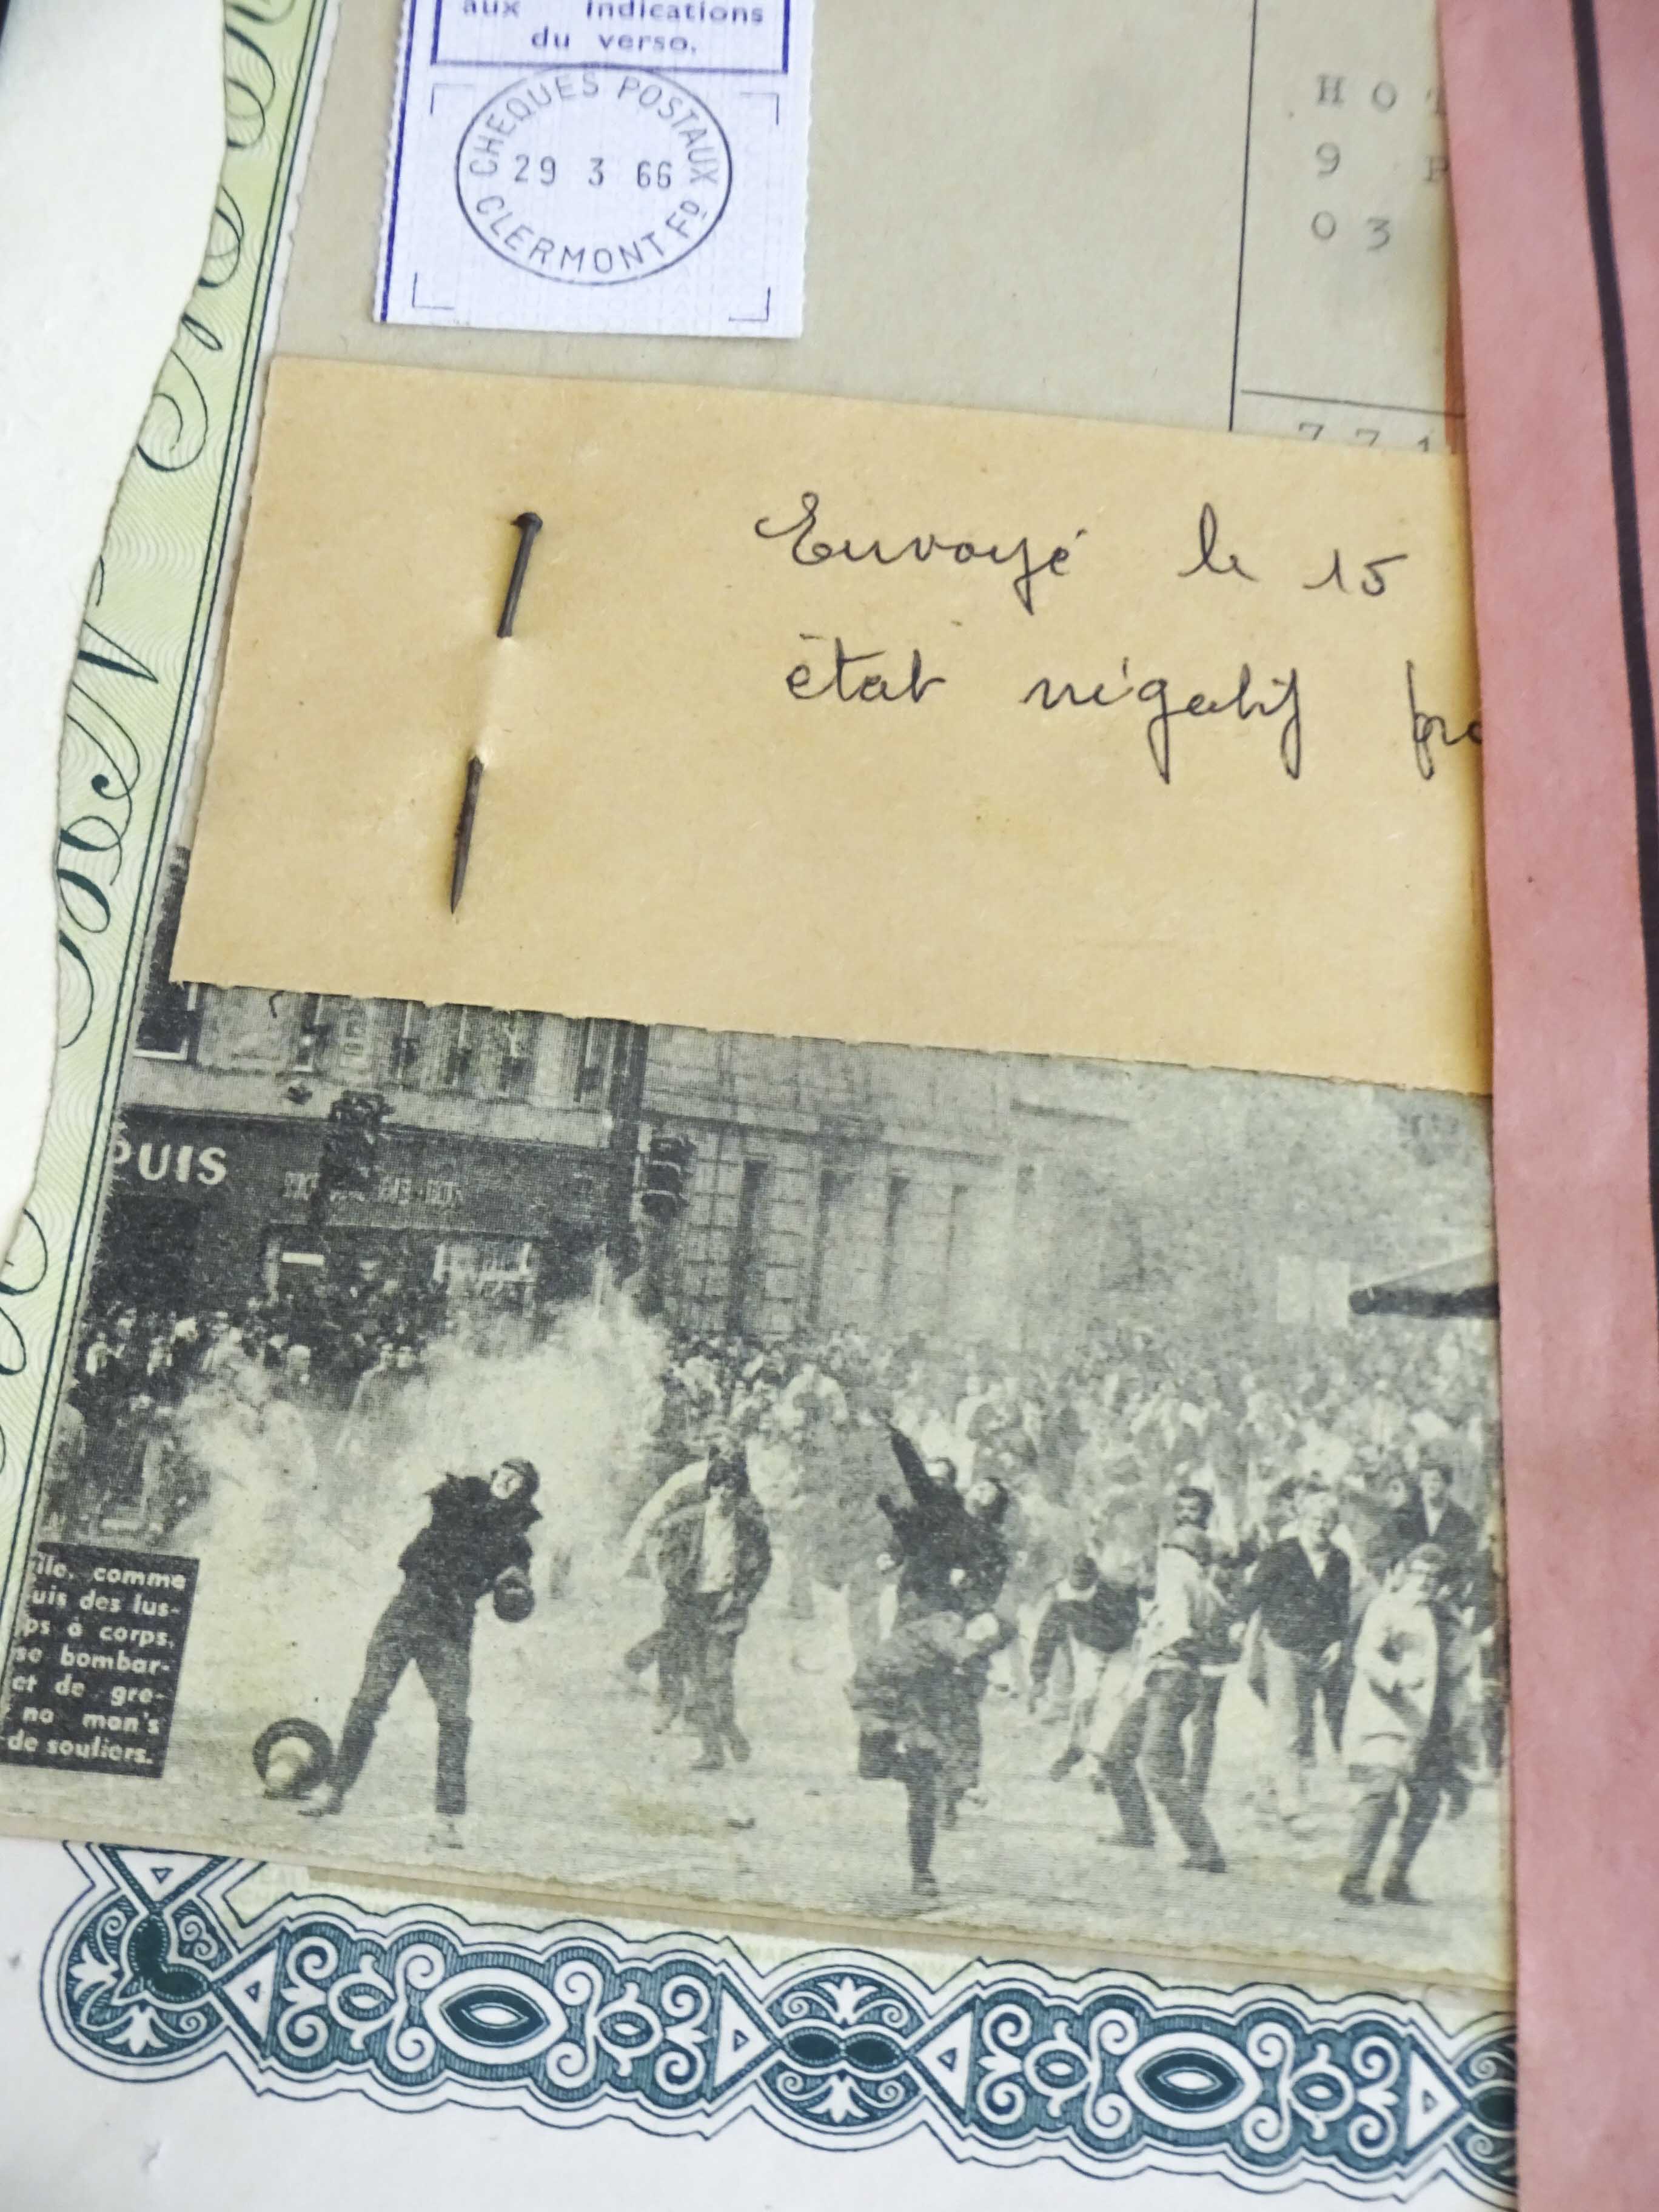 aux indications
du verso.
CHEQUES POSTAUX
29 3 66
CLERMONT Fᴰ
HO
9 P
03
771
Envoyé le 15
état négatif
PUIS
ile, comme
uis des lus-
ps à corps,
se bombar-
et de gre-
no man's
de souliers.